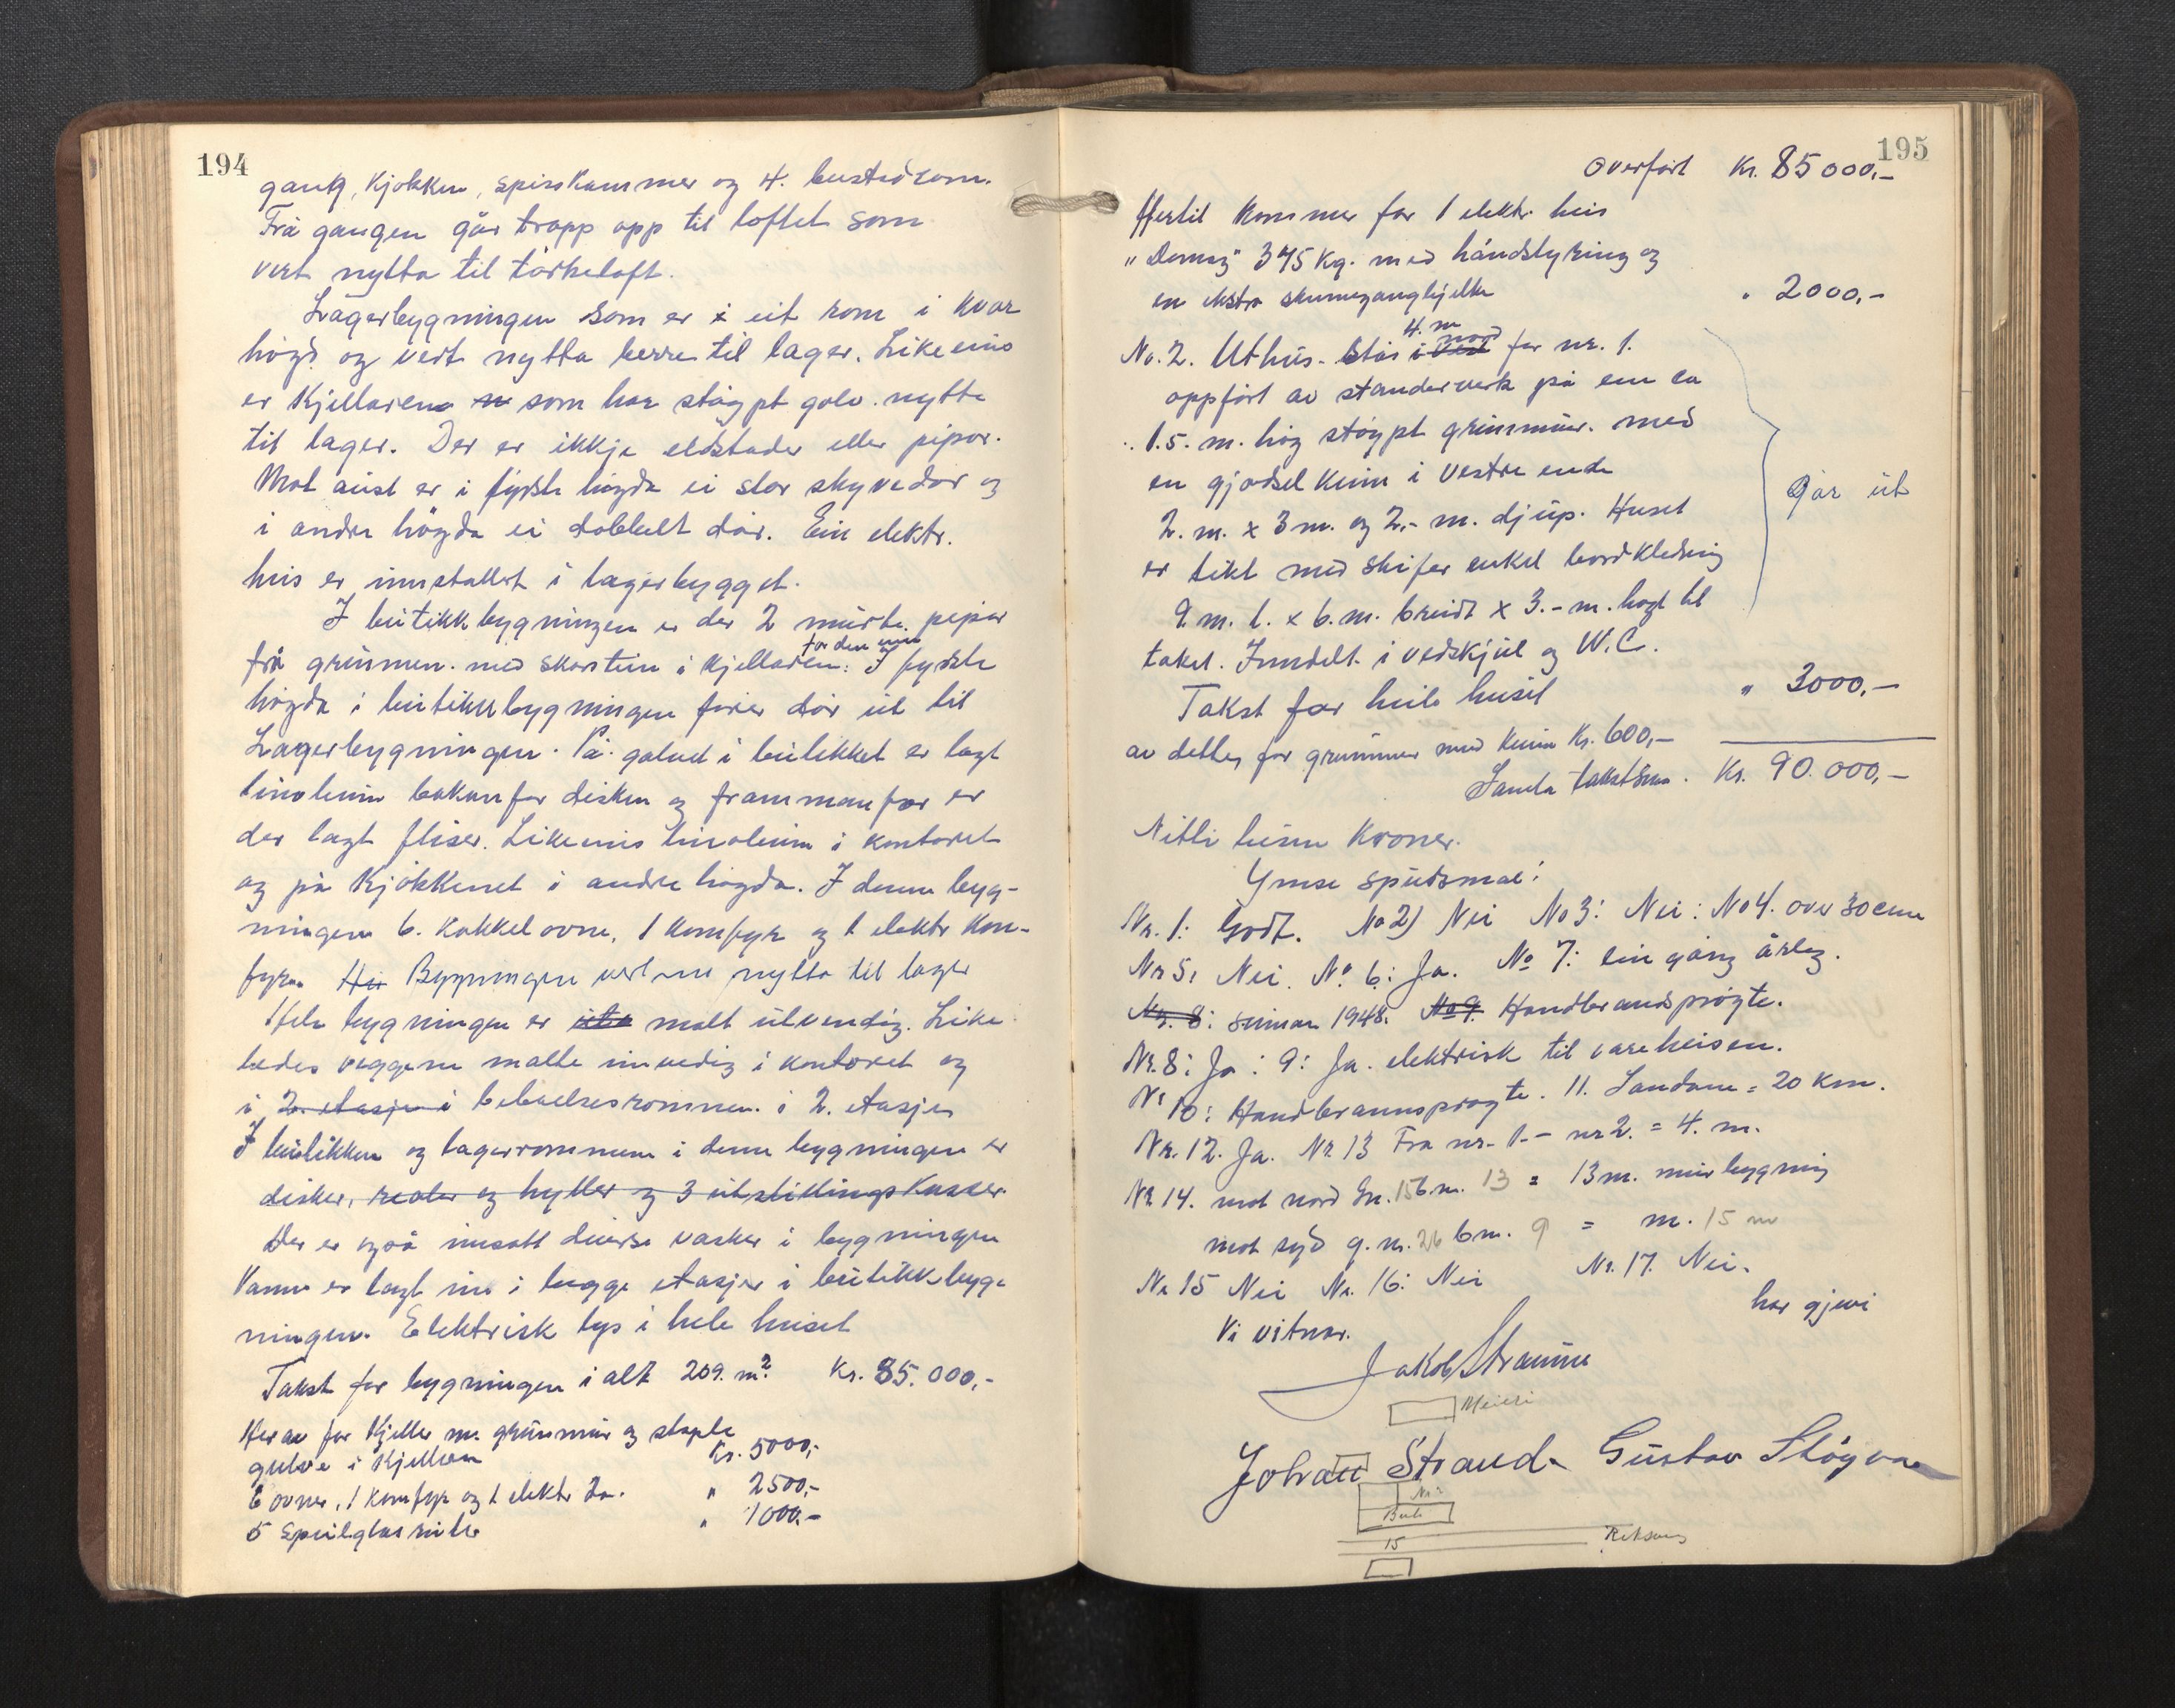 194
gang, Kjøkken, spiskammer og 4. bustadrom.
Frå gangen går trapp opp til loftet som
vert nytta til tørkeloft.
Lagerbygningen som er i eit rom i kvar
høgd og vert nytta berre til lager. Likeeins
er Kjellaren som har støypt golv nytta
til lager. Der er ikkje eldstader eller pipor.
Mot aust er i fyrste høgda ei stor skyvedør og
i andre høgda ei dobbelt dør. Ein elektr.
heis er innstallert i lagerbygget.
I butikkbygningen er der 2 murte pipor
for den
frå grunnen med skorstein i kjellaren: I fyrste
høgda i butikkbygningen fører dør ut til
Lagerbygningen. På golvet i butikket er lagt
linoleum bakanfor disken og frammanfor er
der lagt fliser. Likeeins linoleum i kontoret
og på Kjøkkenet i andre høgda. I denne byg-
ningen 6. Kakkelovne, 1 komfyr og 1 elektr kom-
fyr. Bygningen vert nytta til lager
Hele bygningen er malt utvendig. Like
ledes veggene malte invedig i kontoret og
i 2. etasje i beboelsesrommen i 2. etasje
I butikken og lagerrommene i denne bygningen er
disker, reoler og hyller og 3 utstillingskasser.
Der er også insatt diverse vasker i bygningen
Vann er lagt inn i begge etasjer i butikkbyg-
ningen. Elektrisk lys i hele huset
Takst for bygningen i alt 209. m² Kr. 85.000,-
Herav for Kjeller m. grunnmur og støpte
gulve i Kjelleren Kr. 5000,-
6 ovner, 1 komfyr og 1 elektr do. " 2500,-
5 Speilglasruter " 1000,-
195
Overført Kr. 85000,-
Hertil kommer for 1 elektr. heis
"Demag" 375 Kg. med håndstyring og
en ekstra " 2000,-
4. m nord
No. 2. Uthus. Står i vest for nr. 1.
oppført av standerverk på em ca
1.5. m. høg støypt grunnmur. med
en gjødselkum i vestre ende
2. m. x 3 m. og 2,- m. djup. Huset
er tekt med skifer enkel bordkledning
9. m. l. x 6. m. breidt x 3.- m. høgt til
taket. Inndelt i vedskjul og W.C.
Går ut
Takst for heile huset " 3000,-
av dette for grunnmur med kum Kr. 600,-
Samla takstsum. Kr. 90.000,-
Nitti tusen Kroner.
Ymse spursmål:
Nr. 1: Godt. No 2) Nei No 3: Nei: No 4. over 30 cm
Nr 5: Nei. No. 6: Ja. No 7: ein gang årleg.
Nr. 8: 1948. No 9. Handbrandsprøyte.
Nr. 8: Ja: 9: Ja. elektrisk til vareheisen.
Nr 10: Handbrannsprøyte. 11. Sandane = 20 Km.
Nr. 12. Ja. Nr 13 Fra nr. 1. - nr 2. = 4. m.
Nr 14. mot nord Gn. 156 m. 13 = 13 m. murbygning
mot syd g. n. 26 b m. 9 = m. 15 m
Nr 15 Nei Nr. 16: Nei Nr. 17. Nei.
Vi vitnar. har gjevi
Jakob Straume
Meieri
Johan Strand. Gustav Støyva
Butik
15
Riksveg